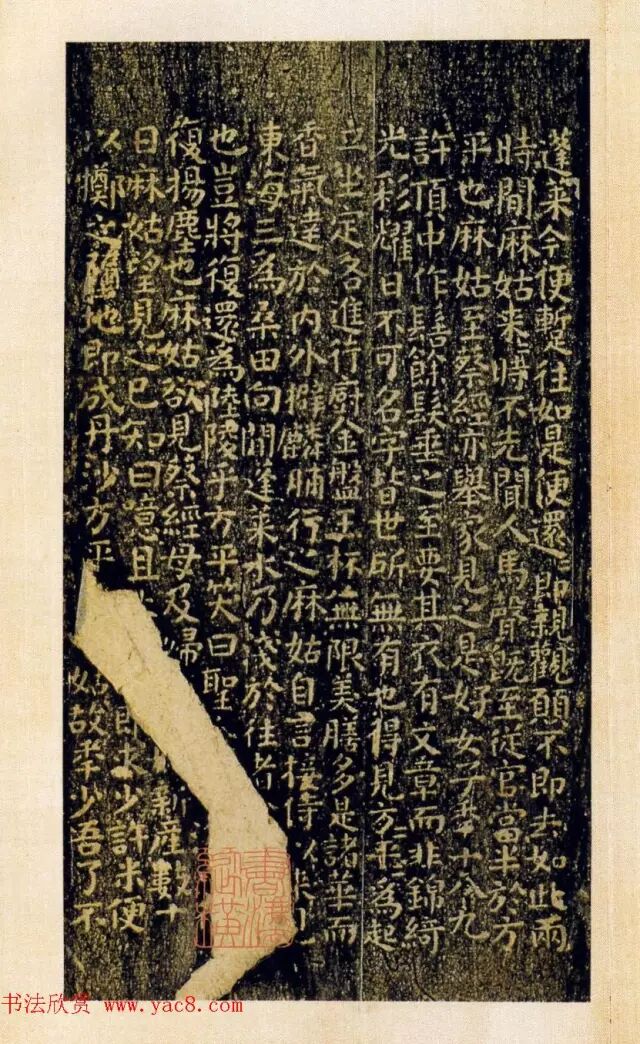 蓬萊今便蹔往如是便還還即親觀願不即去如此兩
時閒麻姑來來時不先聞人馬聲既至從官當半於方
平也麻姑至蔡經亦舉家見之是好女子年十八九
許頂中作髻餘髮垂之至要其衣有文章而非錦綺
光彩耀日不可名字皆世所無有也得見方平方平為起
立坐定各進行廚金盤玉杯無限美膳多是諸華而
香氣達於內外擗麟脯行之麻姑自言接待以來見
東海三為桑田向閒蓬萊水乃淺於往者
也豈將復還為陸陵乎方平笑曰聖
復揚塵也麻姑欲見蔡經母及婦 新產數十
日麻姑望見之已知曰噫且 即求少許米便
以擲之墮地即成丹沙方平 姑故年少吾了不
书法欣赏 www.yac8.com